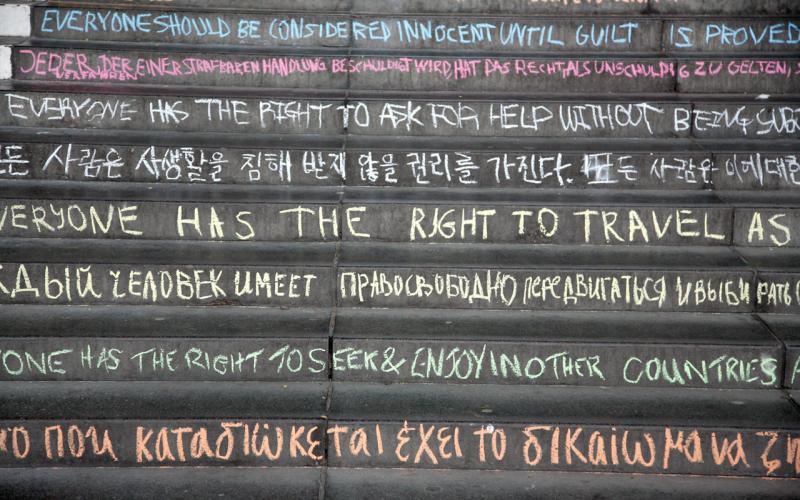 EVERYONE SHOULD BE CONSIDERED INNOCENT UNTIL GUILT IS PROVED
JEDER, DER EINER STRAFBAREN HANDLUNG BESCHULDIGT WIRD HAT DAS RECHT, ALS UNSCHULDIG ZU GELTEN,
VERFAHREN
EVERYONE HAS THE RIGHT TO ASK FOR HELP WITHOUT BEING
사람은 사생활을 침해 받지 않을 권리를 가진다. 모든 사람은 이에
VERYONE HAS THE RIGHT TO TRAVEL AS
ЖДЫЙ ЧЕЛОВЕК ИМЕЕТ ПРАВО СВОБОДНО ПЕРЕДВИГАТЬСЯ И ВЫБИРАТЬ
ONE HAS THE RIGHT TO SEEK & ENJOY IN OTHER COUNTRIES
που καταδιώκεται έχει το δικαίωμα να